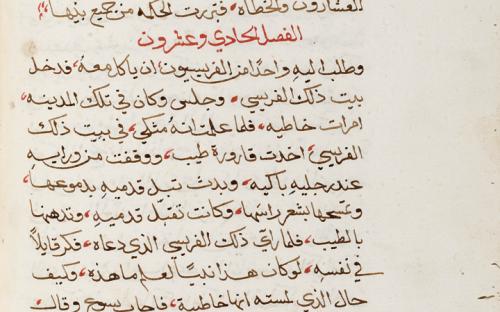 العشارون والخطاه فتبررت الحكمه من جميع بنيها
الفصل الحادي وعشرون
وطلب اليه واحدًا من الفريسيون ان ياكل معه فدخل
بيت ذلك الفريسي وجلس وكان في تلك المدينه
امراة خاطيه فلما علمت انه متكي في بيت ذلك
الفريسي اخدت قارورة طيب ووقفت من ورايه
عند رجليه باكيه وبدت تبل قدميه بدموعها
وتمسحها بشعر راسها وكانت تقبّل قدميه وتدهنها
بالطيب فلما راي ذلك الفريسي الذي دعاه فكر قايلاً
في نفسه لو كان هذا نبيًا لعلم ما هذه وكيف
حال الذي لمسته انها خاطية فاجاب يسوع وقال